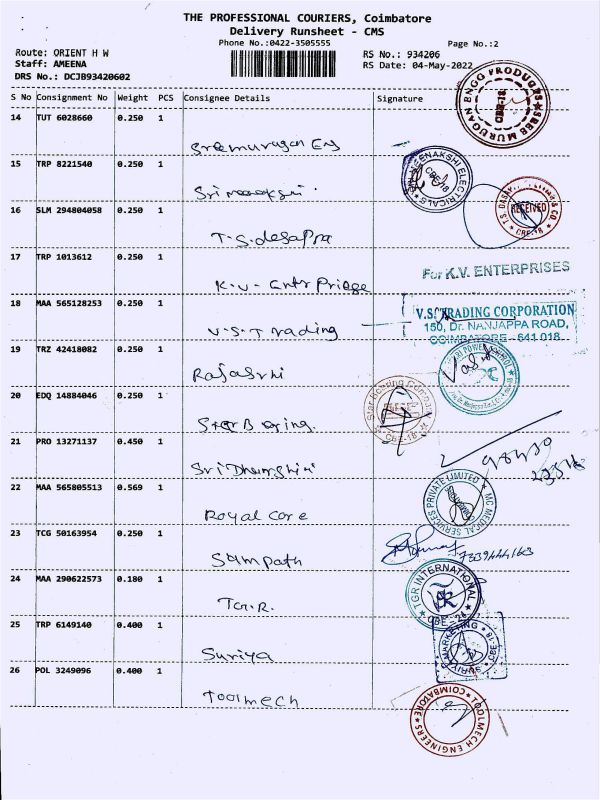 THE PROFESSIONAL COURIERS, Coimbatore
Delivery Runsheet - CMS
Phone No.:0422-3505555
Page No.:2
Route: ORIENT H W
Staff: AMEENA
DRS No.: DCJB93420602
RS No.: 934206
RS Date: 04-May-2022
S No Consignment No Weight PCS Consignee Details Signature
14 TUT 6028660 0.250 1
Sreemurugan Eng
SREE MURUGAN ENGG PRODUCTS
CBE-18
15 TRP 8221540 0.250 1
Sri meenakshi
SRI MEENAKSHI ELECTRICALS
CBE-18
16 SLM 294804058 0.250 1
T.S.desapra
RECEIVED
CBE-18
17 TRP 1013612 0.250 1
K.V. Entr Priage
For K.V. ENTERPRISES
18 MAA 565128253 0.250 1
V.S.Trading
V.S. TRADING CORPORATION
150, Dr. NANJAPPA ROAD,
COIMBATORE - 641 018.
19 TRZ 42418082 0.250 1
Rajashri
20 EDQ 14884046 0.250 1
Star Bearing.
Star Bearing Company
CBE-18
21 PRO 13271137 0.450 1
Sri Dhanshini
22 MAA 565805513 0.569 1
Royal Care
MC MEDICAL SERVICES PRIVATE LIMITED
23 TCG 50163954 0.250 1
Sampath
24 MAA 290622573 0.180 1
TGR.R.
TGR INTERNATIONAL
CBE-24
25 TRP 6149140 0.400 1
Suriya
SURIYA MARKETING
CBE-18
26 POL 3249096 0.400 1
Toolmech
TOOLMECH ENGINEERS
COIMBATORE